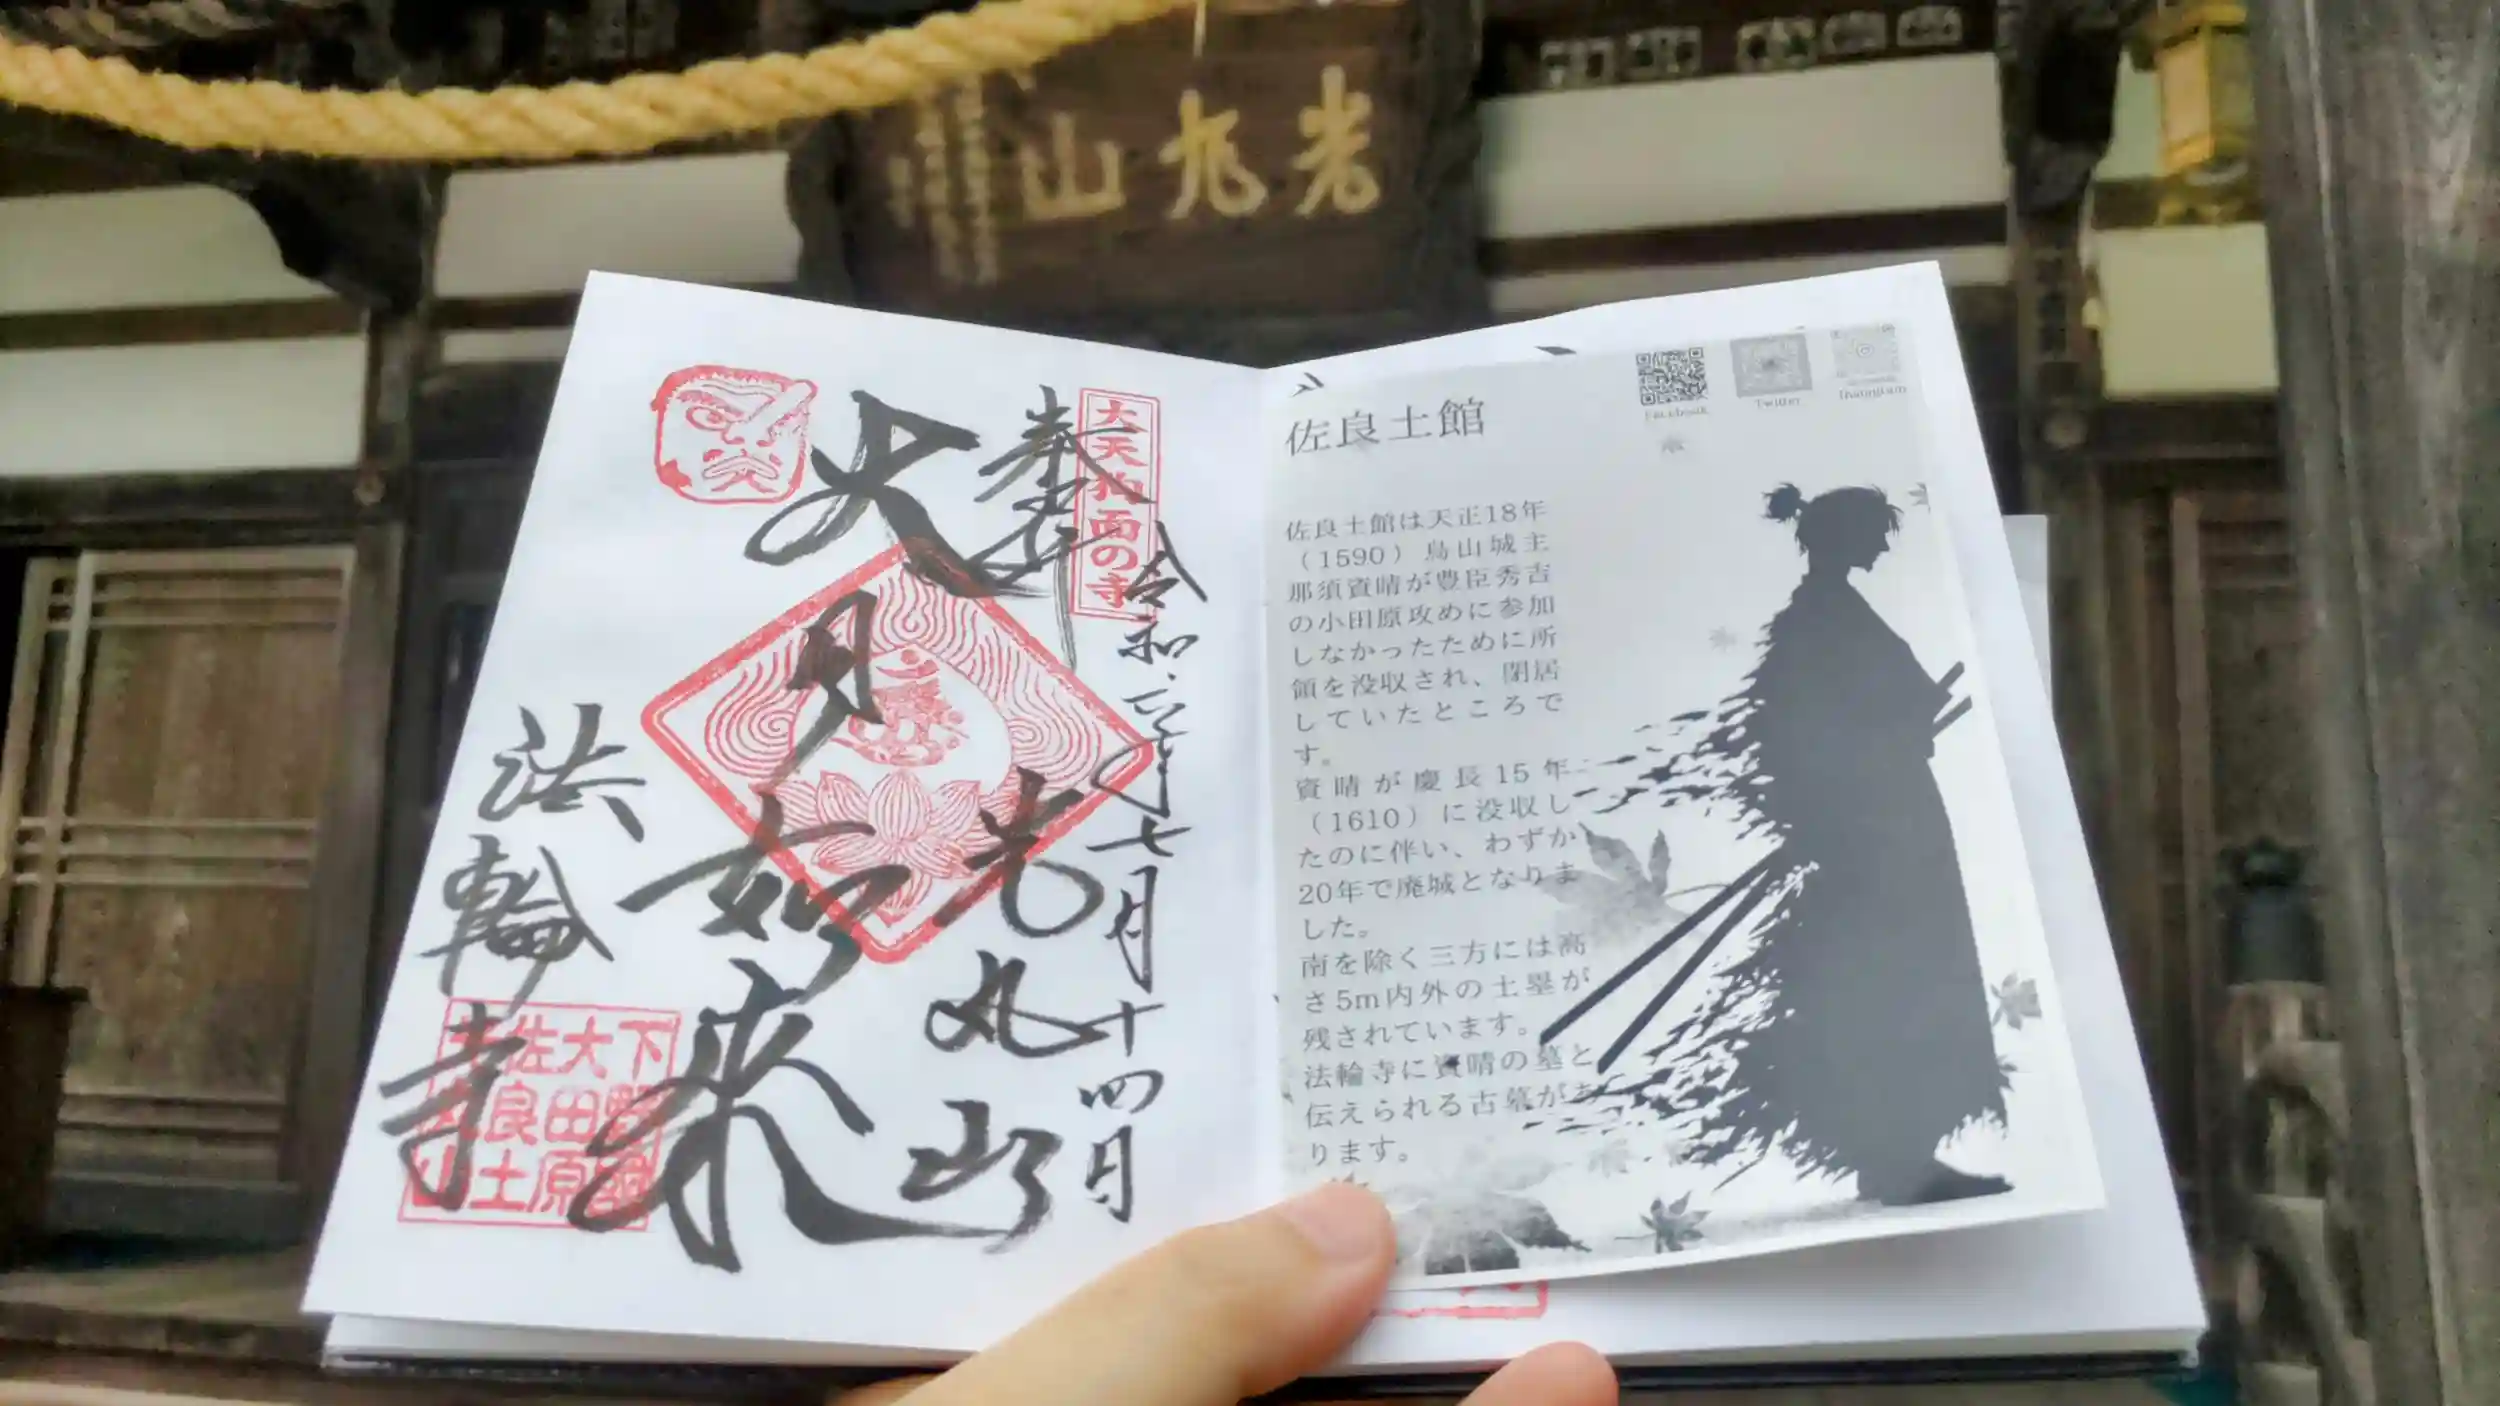 光丸山
大天狗面の寺
奉拝
令和年七月十四日
光丸山
大日如来
法輪寺
下野國
大田原
佐良土
光丸山
佐良土館
Facebook
Twitter
Instagram
佐良土館は天正18年
（1590）烏山城主
那須資晴が豊臣秀吉
の小田原攻めに参加
しなかったために所
領を没収され、閉居
していたところで
す。
資晴が慶長15年
（1610）に没収し
たのに伴い、わずか
20年で廃城となりま
した。
南を除く三方には高
さ5m内外の土塁が
残されています。
法輪寺に資晴の墓と
伝えられる古墓があ
ります。